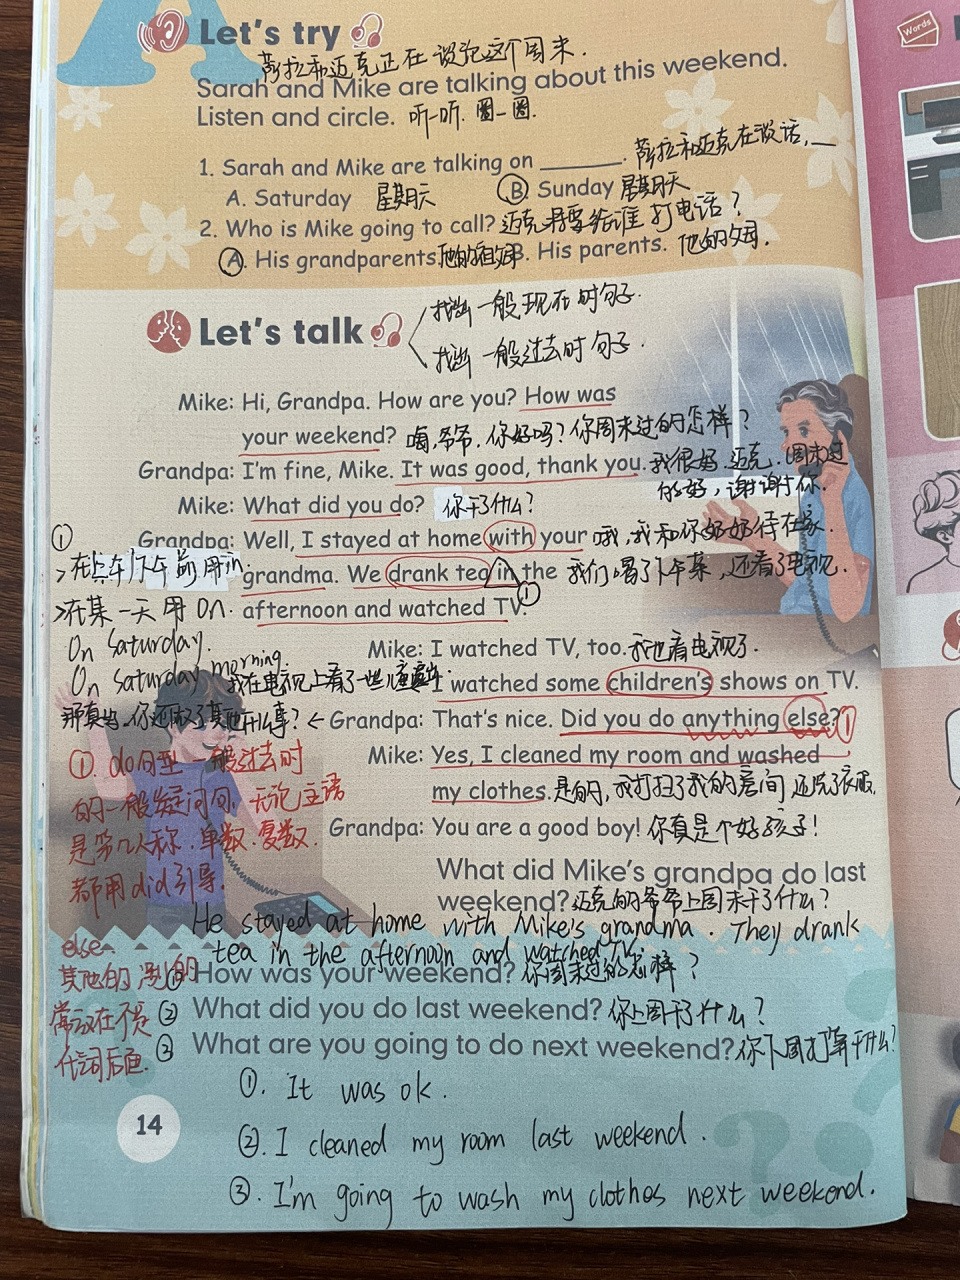 Let's try
萨拉和迈克正在谈论这个周末.
Sarah and Mike are talking about this weekend.
Listen and circle. 听一听. 圈一圈.
1. Sarah and Mike are talking on ______. 萨拉和迈克在谈话, __
A. Saturday 星期六 B. Sunday 星期天
2. Who is Mike going to call? 迈克将要给谁打电话?
A. His grandparents. 他的祖父母 B. His parents. 他的父母.
Let's talk
找出一般现在时句子.
找出一般过去时句子.
Mike: Hi, Grandpa. How are you? How was
your weekend? 嗨,爷爷. 你好吗? 你周末过的怎样?
Grandpa: I'm fine, Mike. It was good, thank you. 我很好. 迈克. 周末过
的好, 谢谢你.
Mike: What did you do? 你干了什么?
①
Grandpa: Well, I stayed at home with your 哦, 我和你奶奶待在家.
>在上午/下午前用in
grandma. We drank tea in the 我们喝了下午茶, 还看了电视.
>在某一天用on.
afternoon and watched TV. ①
On Saturday.
Mike: I watched TV, too. 我也看电视了.
On Saturday morning.
我在电视上看了一些儿童
I watched some children's shows on TV.
那真当, 你还做了其他什么事? ← Grandpa: That's nice. Did you do anything else? ①
①. do句型一般过去时
Mike: Yes, I cleaned my room and washed
的一般疑问句, 无论主语
my clothes. 是的, 我打扫了我的房间, 还洗了衣服.
是第几人称. 单数. 复数.
Grandpa: You are a good boy! 你真是个好孩子!
都用did引导.
What did Mike's grandpa do last
weekend? 迈克的爷爷上周末干了什么?
He stayed at home with Mike's grandma. They drank
tea in the afternoon and watched TV.
else.
其他的 别的
常放在不定
代词后面.
① How was your weekend? 你周末过的怎样?
② What did you do last weekend? 你上周干了什么?
③ What are you going to do next weekend? 你下周打算干什么?
①. It was ok.
②. I cleaned my room last weekend.
③. I'm going to wash my clothes next weekend.
14
Words